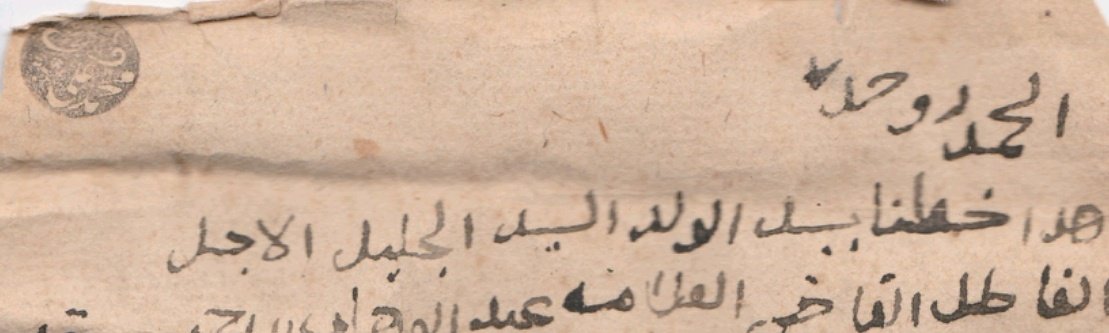 الحمد لله وحده
هذا خطنا بيد الولد السيد الجليل الاجل
الفاضل القاضي العلامه عبد